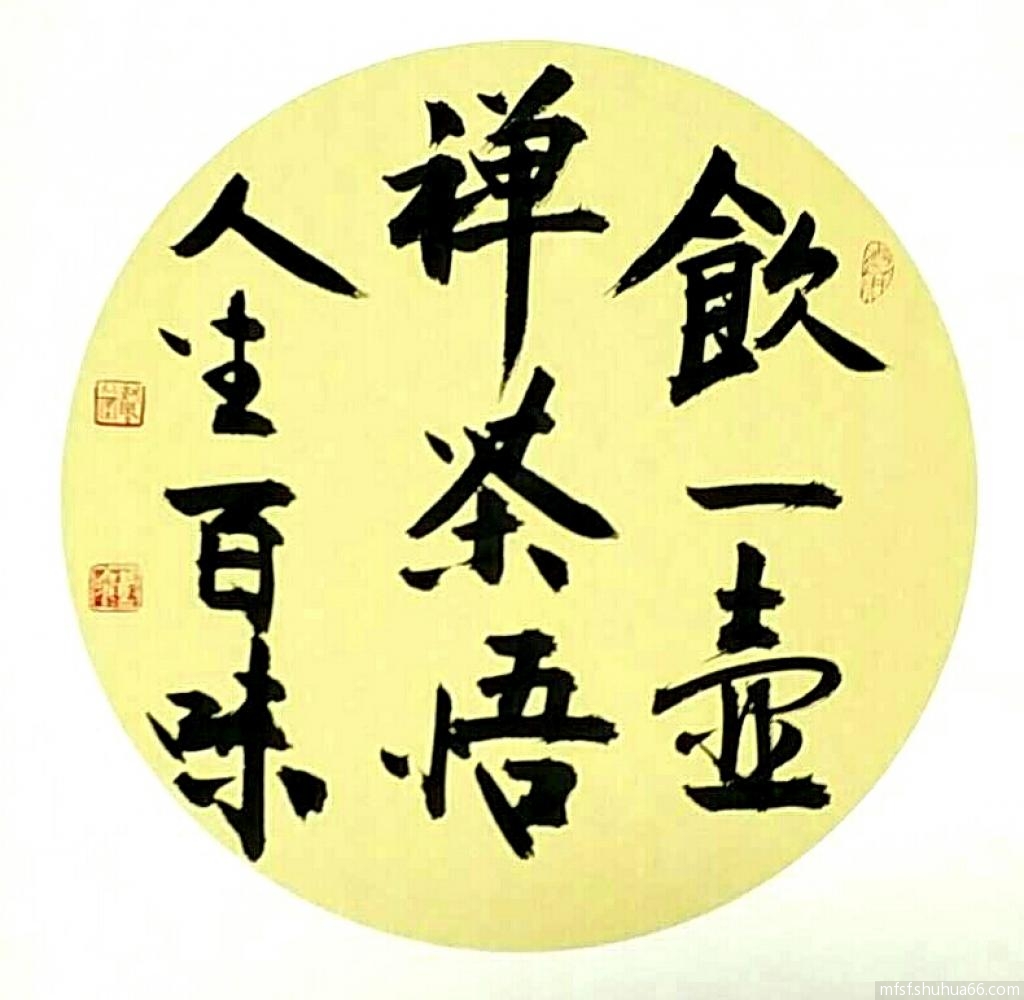 飲一壶
禅茶悟
人生百味
mfsf.shuhua66.com